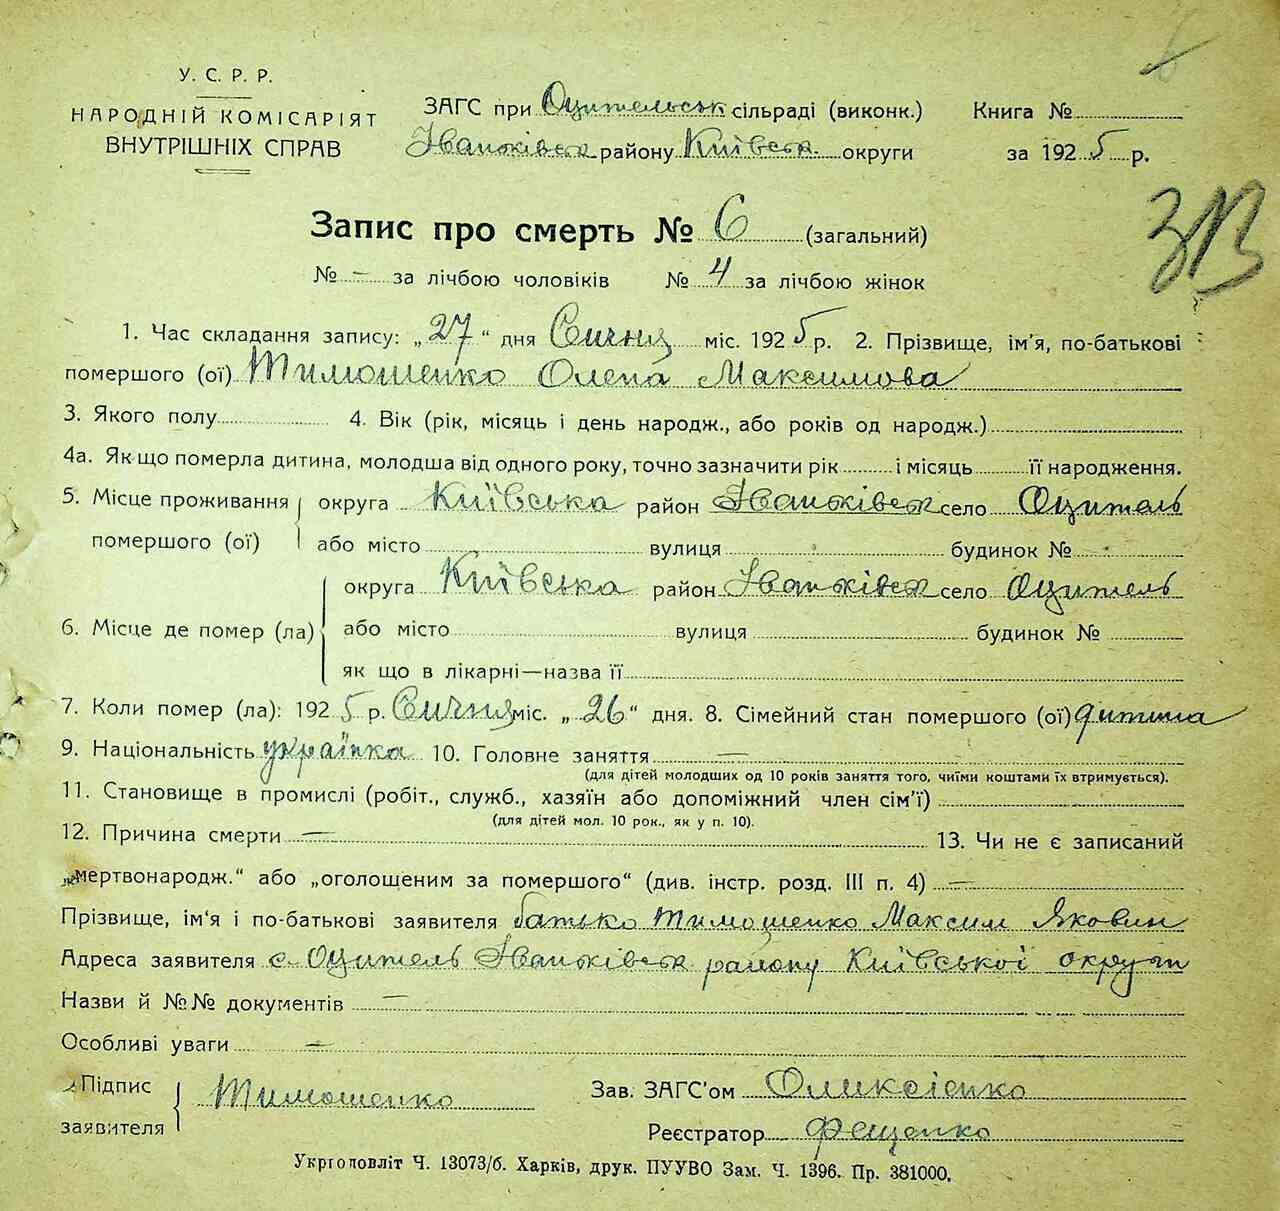 У. С. Р. Р.
НАРОДНІЙ КОМІСАРІЯТ
ВНУТРІШНІХ СПРАВ
ЗАГС при Оцительськ сільраді (виконк.)
Іванківськ району Київськ. округи
Книга №
за 1925 р.
313
Запис про смерть № 6 (загальний)
№ — за лічбою чоловіків № 4 за лічбою жінок
1. Час складання запису: „27“ дня Січня міс. 1925 р. 2. Прізвище, ім'я, по-батькові
помершого (ої) Тимошенко Олена Максимова
3. Якого полу 4. Вік (рік, місяць і день народж., або років од народж.)
4а. Як що померла дитина, молодша від одного року, точно зазначити рік і місяць її народження.
5. Місце проживання округа Київська район Іванківськ село Оцитель
помершого (ої) або місто вулиця будинок №
округа Київська район Іванківськ село Оцитель
6. Місце де помер (ла) або місто вулиця будинок №
як що в лікарні—назва її
7. Коли помер (ла): 1925 р. Січня міс. „26“ дня. 8. Сімейний стан помершого (ої) дитина
9. Національність українка 10. Головне заняття —
(для дітей молодших од 10 років заняття того, чиїми коштами їх втримується).
11. Становище в промислі (робіт., служб., хазяїн або допоміжний член сім'ї)
(для дітей мол. 10 рок., як у п. 10).
12. Причина смерти — 13. Чи не є записаний
„мертвонародж.“ або „оголошеним за помершого“ (див. інстр. розд. III п. 4) —
Прізвище, ім'я і по-батькові заявителя батько Тимошенко Максим Яковин
Адреса заявителя с. Оцитель Іванківськ району Київської округи
Назви й №№ документів —
Особливі уваги —
Підпис заявителя Тимошенко
Зав. ЗАГС'ом Оликсієнко
Реєстратор Фещенко
Укрголовліт Ч. 13073/б. Харків, друк. ПУУВО Зам. Ч. 1396. Пр. 381000.